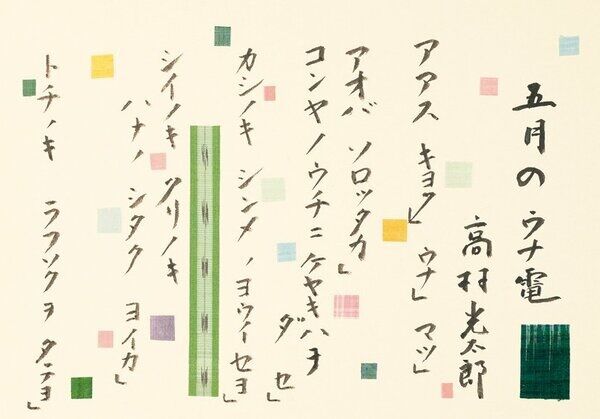 五月のウナ電
高村光太郎
アアス キヨク」 ウナ」 マツ」
アオバ ソロツタカ」
コンヤノウチニ ケヤキハヲ
ダセ」
カシノキ シンメノヨウイセヨ」
シイノキ クリノキ
ハナノシタク ヨイカ」
トチノキ ラフソクヲ タテヨ」